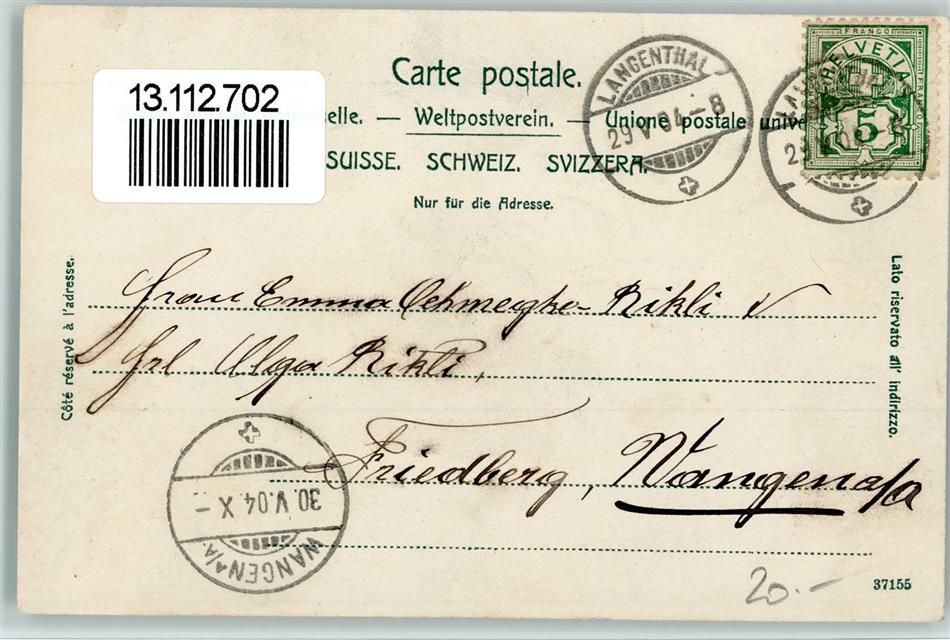 Carte postale.
13.112.702
elle. — Weltpostverein. — Unione postale unive
SUISSE. SCHWEIZ. SVIZZERA.
Nur für die Adresse.
LANGENTHAL
29 V 04 - 8
FRANCO
HELVETIA
5
Côté réservé à l'adresse.
Lato riservato all' indirizzo.
Frau Emma Rikli &
Frl Olga Rikli,
Friedberg, Wangen a/a
30 V.04 X -
WANGEN a/A.
20.-
37155